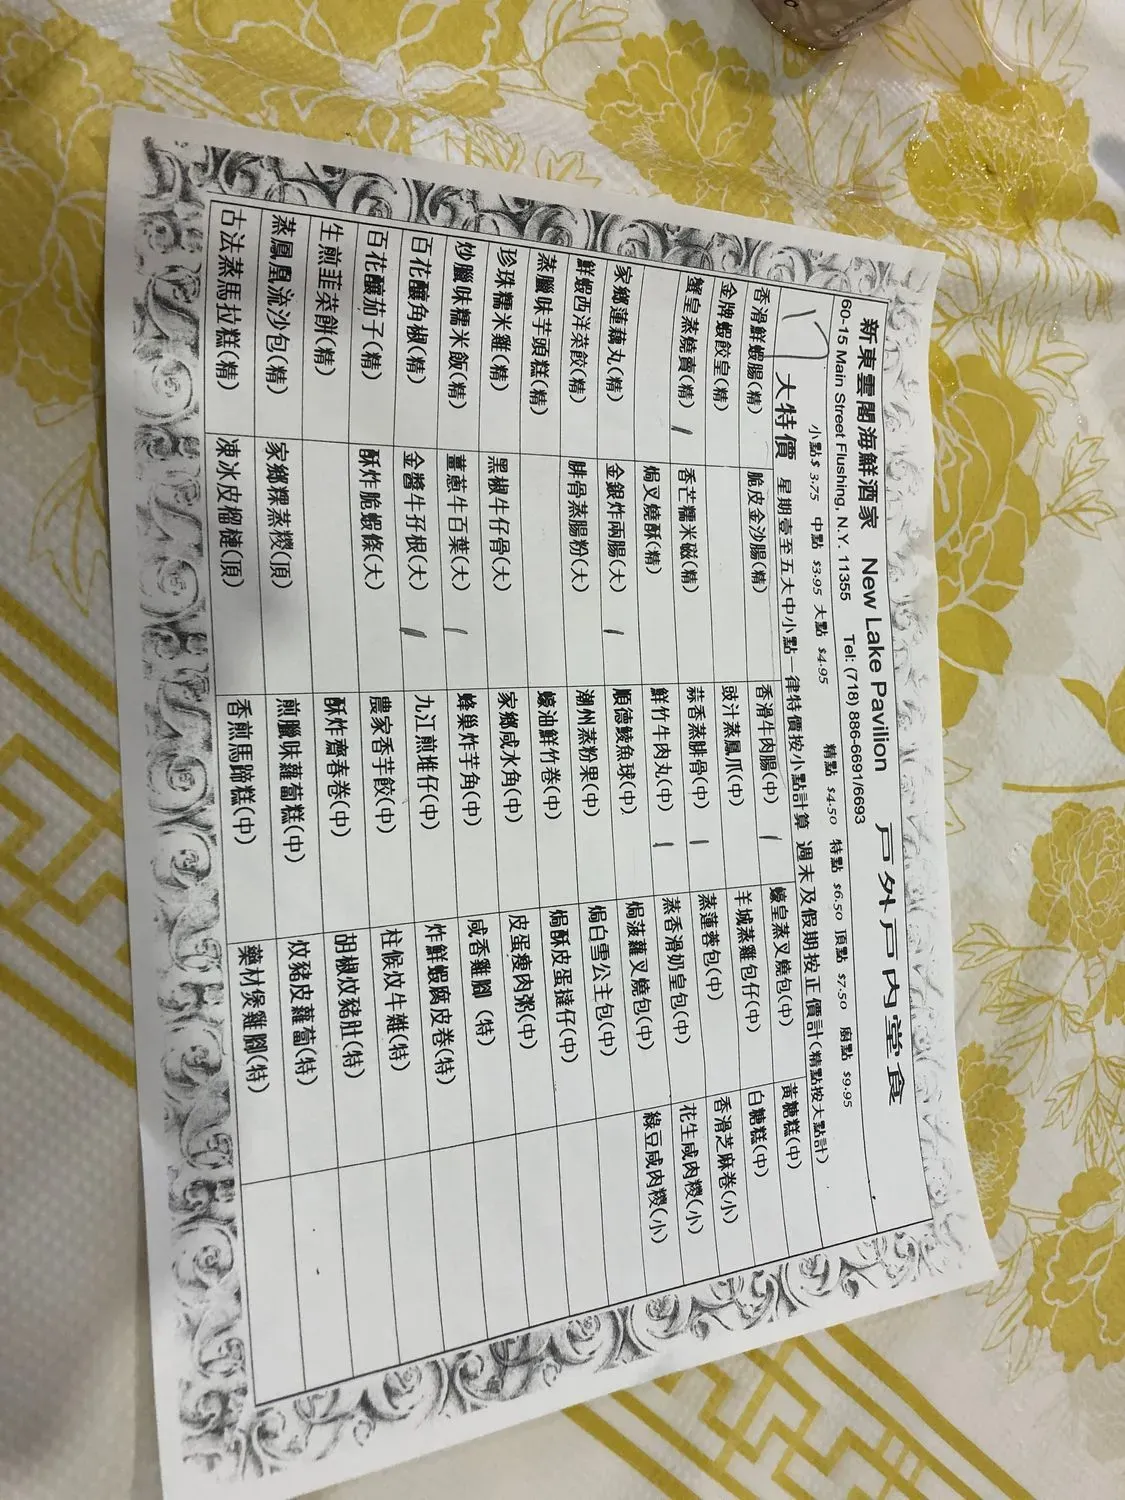 新東雲閣海鮮酒家 New Lake Pavilion 戶外戶內堂食
60-15 Main Street Flushing, N.Y. 11355 Tel: (718) 886-6691/6693
小點$ 3.75 中點 $3.95 大點 $4.95 精點 $4.50 特點 $6.50 頂點 $7.50 廚點 $9.95
17 大特價 星期壹至五大中小點一律特價按小點計算 週末及假期按正價計(精點按大點計)
香滑鮮蝦腸(精) 脆皮金沙腸(精) 香滑牛肉腸(中) 蠔皇蒸叉燒包(中) 黃糖糕(中)
金牌蝦餃皇(精) 豉汁蒸鳳爪(中) 羊城蒸雞包仔(中) 白糖糕(中)
蟹皇蒸燒賣(精) 香芒糯米磁(精) 蒜香蒸腓骨(中) 蒸蓮蓉包(中) 香滑芝麻卷(小)
焗叉燒酥(精) 鮮竹牛肉丸(中) 蒸香滑奶皇包(中) 花生咸肉糉(小)
家鄉蓮藕丸(精) 金銀炸兩腸(大) 順德鯪魚球(中) 焗菠蘿叉燒包(中) 綠豆咸肉糉(小)
鮮蝦西洋菜餃(精) 腓骨蒸腸粉(大) 潮州蒸粉果(中) 焗白雪公主包(中)
蒸臘味芋頭糕(精) 蠔油鮮竹卷(中) 焗酥皮蛋撻仔(中)
珍珠糯米雞(精) 黑椒牛仔骨(大) 家鄉咸水角(中) 皮蛋瘦肉粥(中)
炒臘味糯米飯(精) 薑蔥牛百葉(大) 蜂巢炸芋角(中) 咸香雞腳 (特)
百花釀角椒(精) 金醬牛孖根(大) 九江煎堆仔(中) 炸鮮蝦腐皮卷(特)
百花釀茄子(精) 酥炸脆蝦條(大) 農家香芋餃(中) 柱候炆牛雜(特)
生煎韮菜餅(精) 酥炸齋春卷(中) 胡椒炆豬肚(特)
蒸鳳凰流沙包(精) 家鄉粿蒸糉(頂) 煎臘味蘿蔔糕(中) 炆豬皮蘿蔔(特)
古法蒸馬拉糕(精) 凍冰皮榴槤(頂) 香煎馬蹄糕(中) 藥材煲雞腳(特)